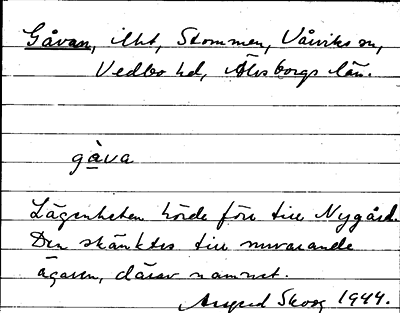 Gåvan, lht, Stommen, Vårviks sn,
Vedbo hd, Älvsborgs län.
gåva
Lägenheten hörde förr till Nygård.
Den skänktes till nuvarande
ägaren, därav namnet.
Skoog 1944.